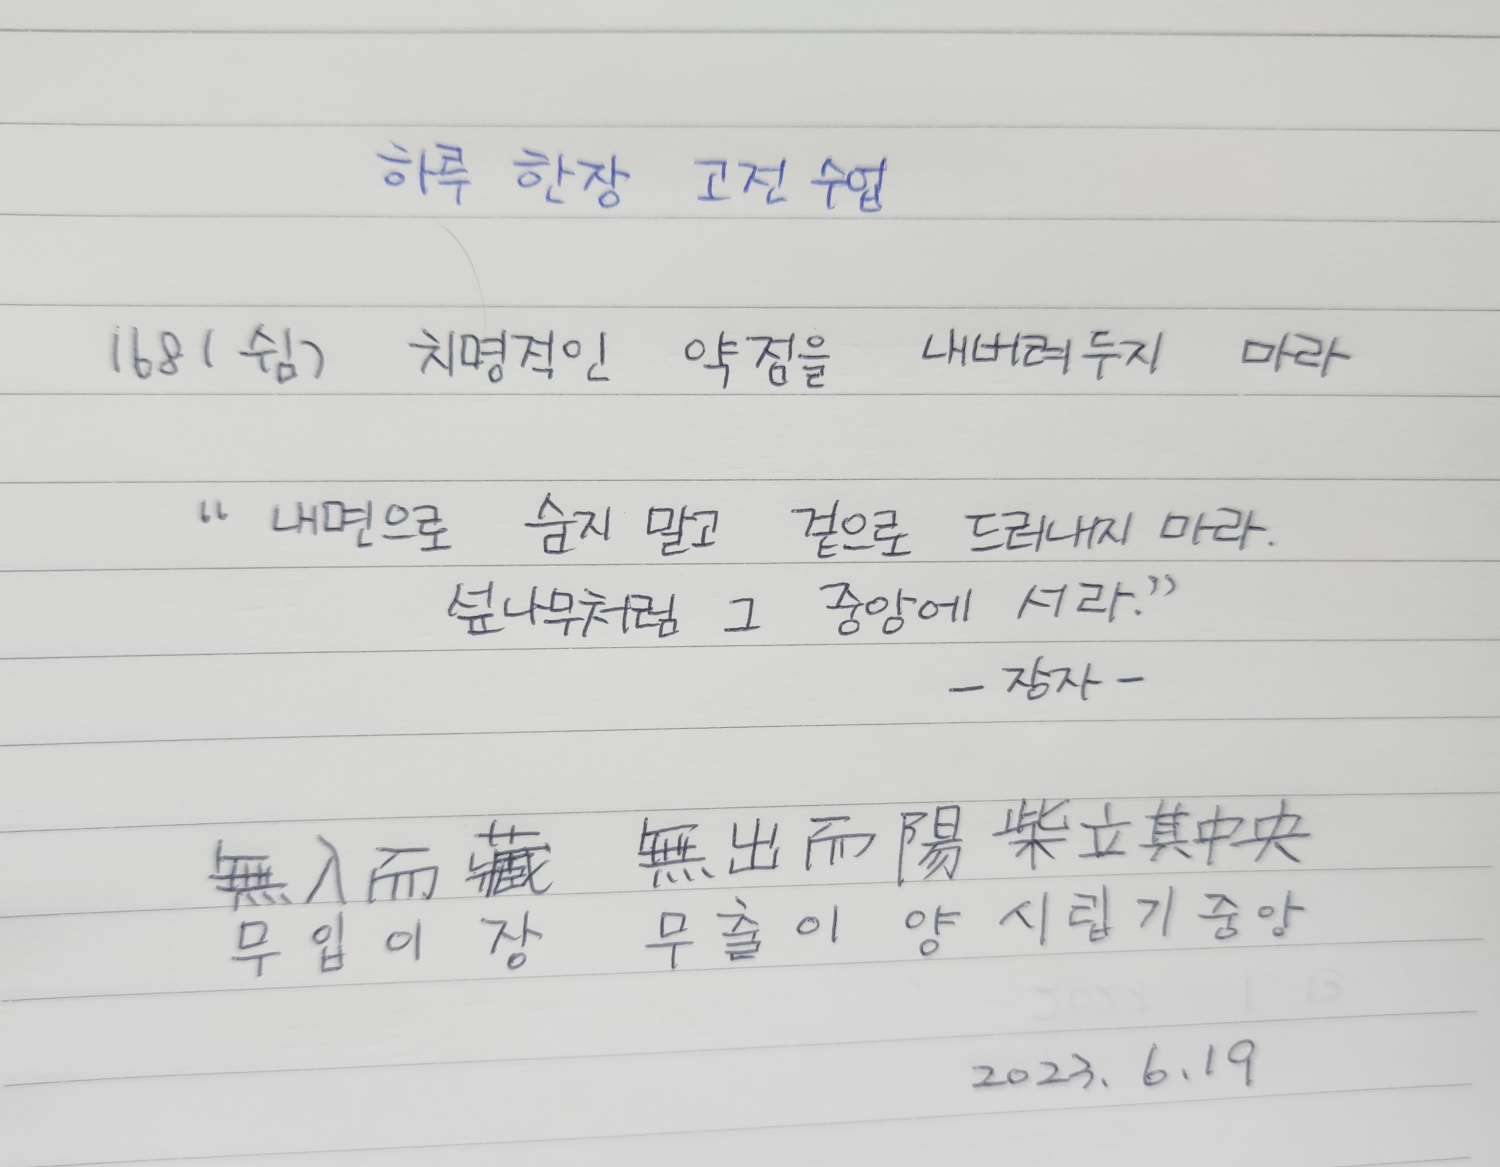 하루 한장 고전 수업
168 (쉼) 치명적인 약점을 내버려두지 마라
“ 내면으로 숨지 말고 겉으로 드러내지 마라.
섶나무처럼 그 중앙에 서라.”
- 장자 -
無入而藏 無出而陽 柴立其中央
무입이장 무출이양 시립기중앙
2023. 6. 19